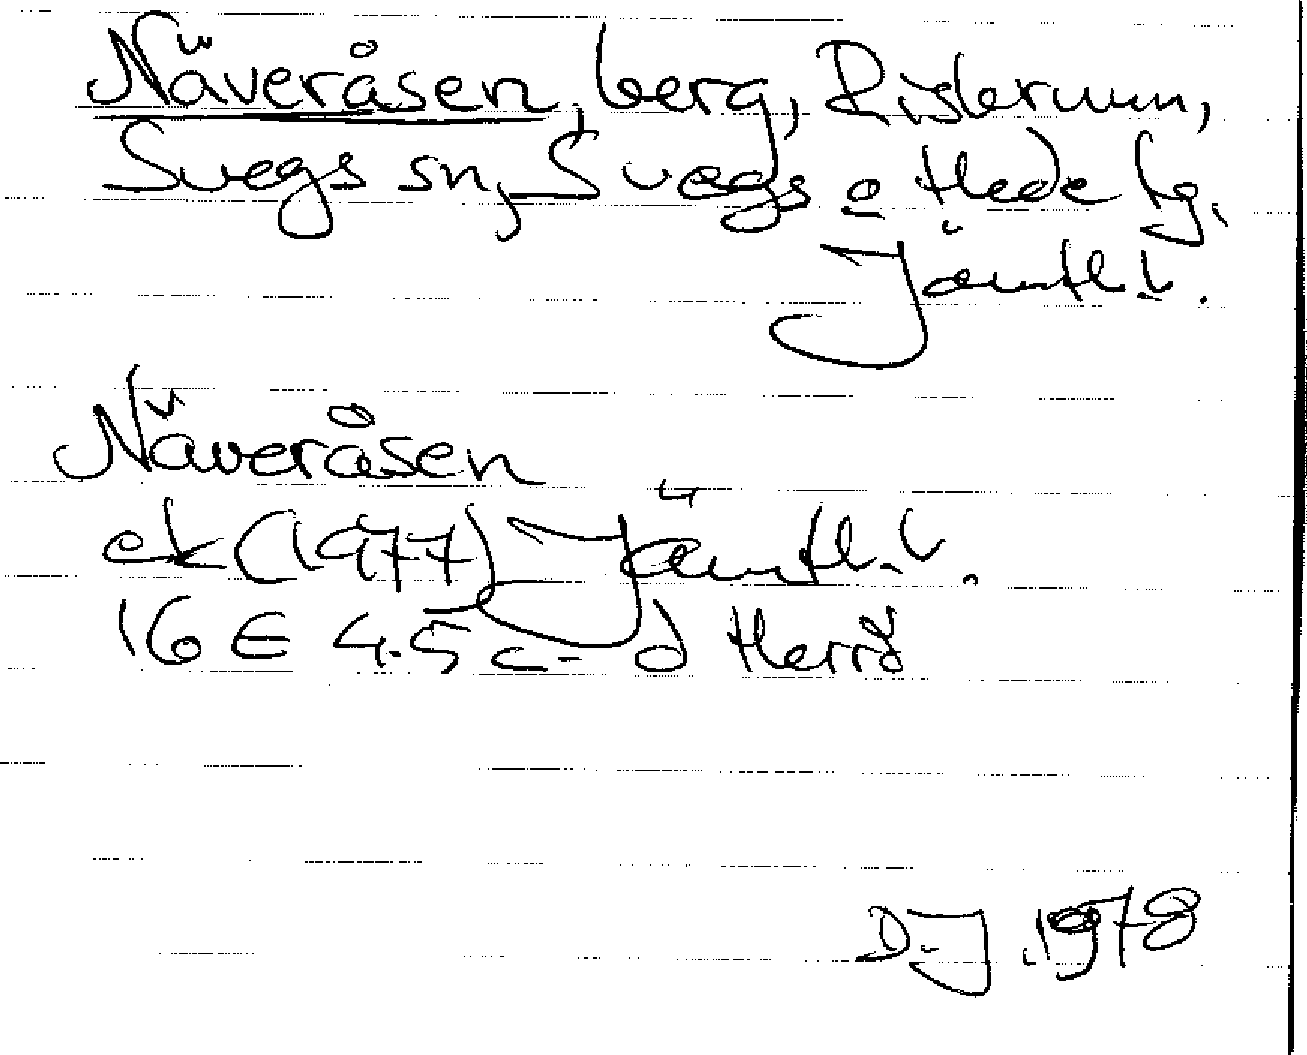 Näveråsen, berg, Risbrunn,
Svegs sn, Svegs o Hede tg,
Jämtl. l.
Näveråsen
ek (1977) Jämtl. l.
16 E 4-5 c-d Herrö
D.J. 1978